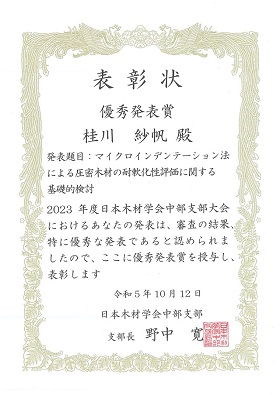 表彰状
優秀発表賞
桂川 紗帆 殿
発表題目：マイクロインデンテーション法
による圧密木材の耐軟化性評価に関する
基礎的検討
2023 年度日本木材学会中部支部大会
におけるあなたの発表は、審査の結果、
特に優秀な発表であると認められま
したので、ここに優秀発表賞を授与し、
表彰します
令和５年１０月１２日
日本木材学会中部支部
支部長 野中 寛